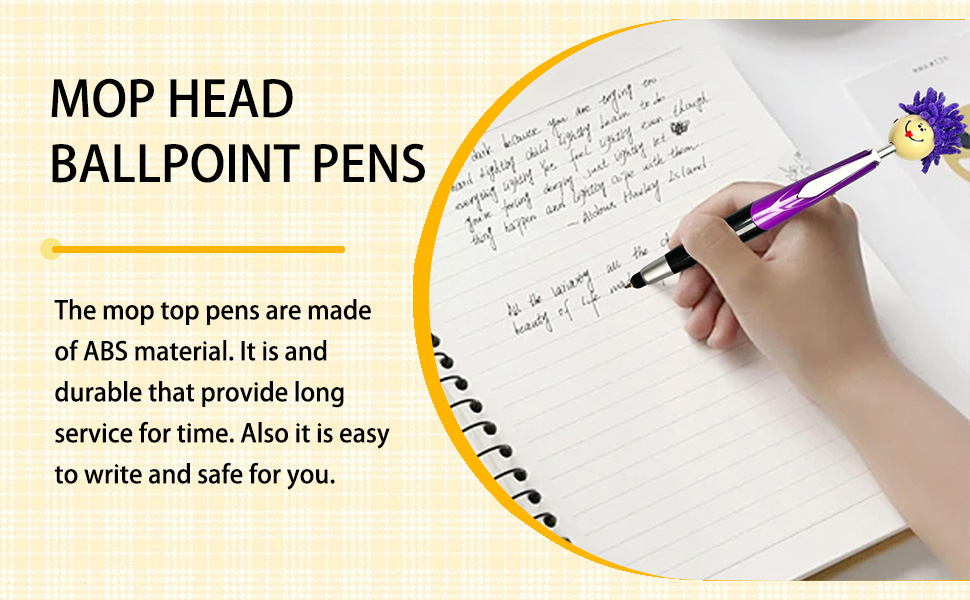 MOP HEAD
BALLPOINT PENS
The mop top pens are made
of ABS material. It is and
durable that provide long
service for time. Also it is easy
to write and safe for you.
dark because you are trying too
hard lightly child lightly learn to do
everything lightly Yes feel lightly even though
you're feeling deeply just lightly let
thing happen and lightly cope with them
—Aldous Huxley Island
all the
beauty of life